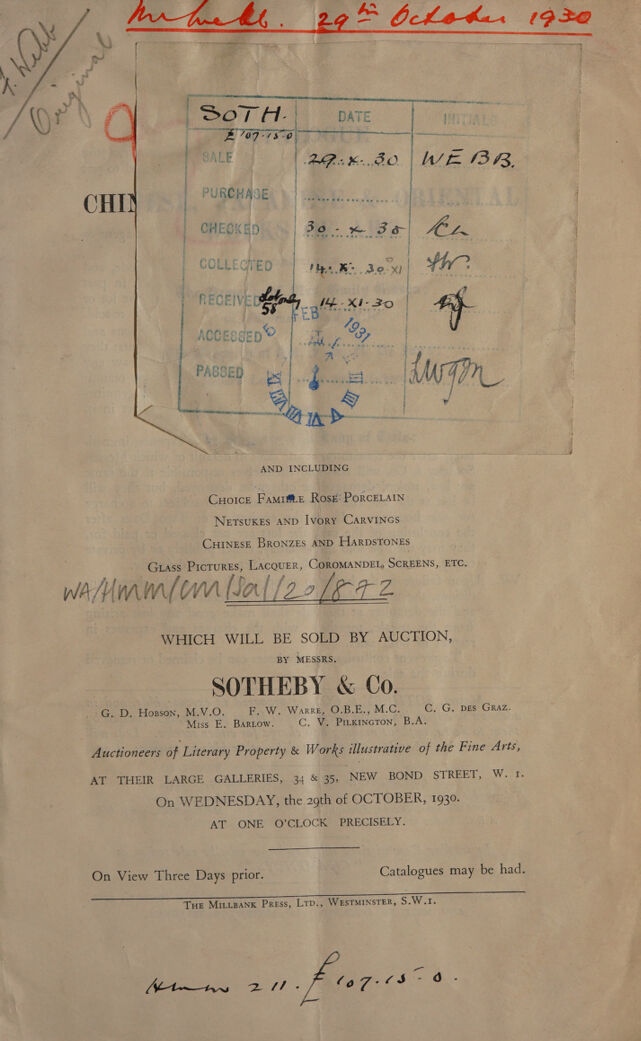 Mr Webb. 29th October 1930
F. Webb
Original
SOTH. DATE INITIALS
£107-15-0
SALE 29.X.30 WEBB.
PURCHASE
CHIN
CHECKED 30-X-30
COLLECTED
RECEIVED Lot only 58 14.XI.30
5 FEB 1931
ACCESSED
PASSED
AND INCLUDING
CHOICE FAMILLE ROSE PORCELAIN
NETSUKES AND IVORY CARVINGS
CHINESE BRONZES AND HARDSTONES
GLASS PICTURES, LACQUER, COROMANDEL SCREENS, ETC.
WA/HMM/CM/Sal/20/872
WHICH WILL BE SOLD BY AUCTION,
BY MESSRS.
SOTHEBY & Co.
G. D. HOBSON, M.V.O. F. W. WARRE, O.B.E., M.C. C. G. DES GRAZ.
MISS E. BARLOW. C. V. PILKINGTON, B.A.
Auctioneers of Literary Property & Works illustrative of the Fine Arts,
AT THEIR LARGE GALLERIES, 34 & 35, NEW BOND STREET, W. 1.
On WEDNESDAY, the 29th of OCTOBER, 1930.
AT ONE O'CLOCK PRECISELY.
On View Three Days prior. Catalogues may be had.
THE MILLBANK PRESS, LTD., WESTMINSTER, S.W.1.
211. £107-15-0.